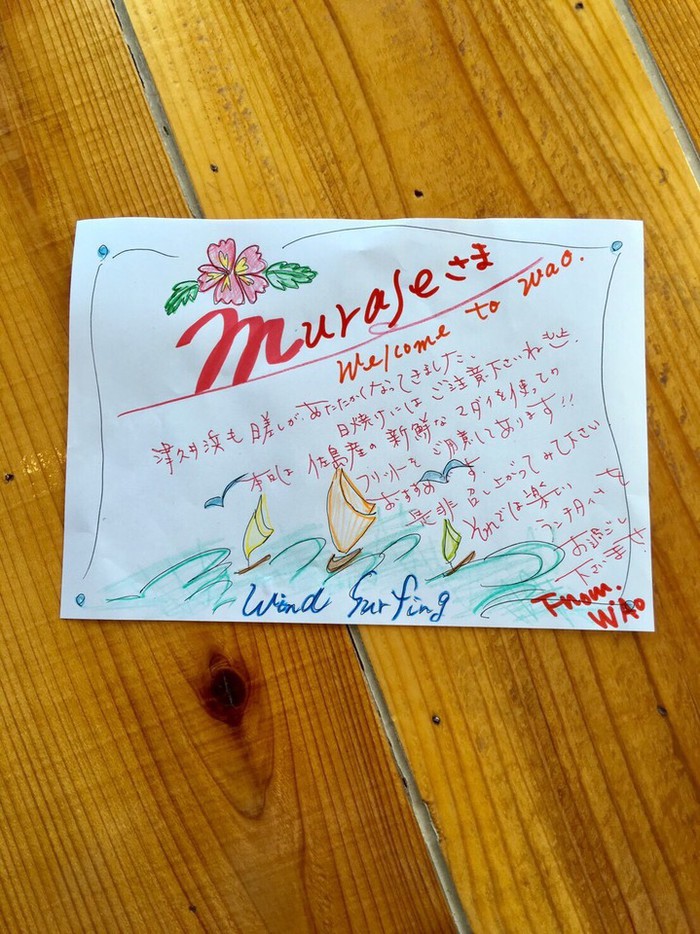 Muraseさま
Welcome to wao.
津久井浜も日差しが、あたたかくなってきました、
日焼けにはご注意下さいね
本日は佐島産の新鮮なマダイを使っての
フリットをご用意してあります!!
おすすめです.
是非召し上がってみて下さい
それでは楽しい
ランチタイムを
お過ごし
下さいませ.
Wind Surfing
From.
WAO